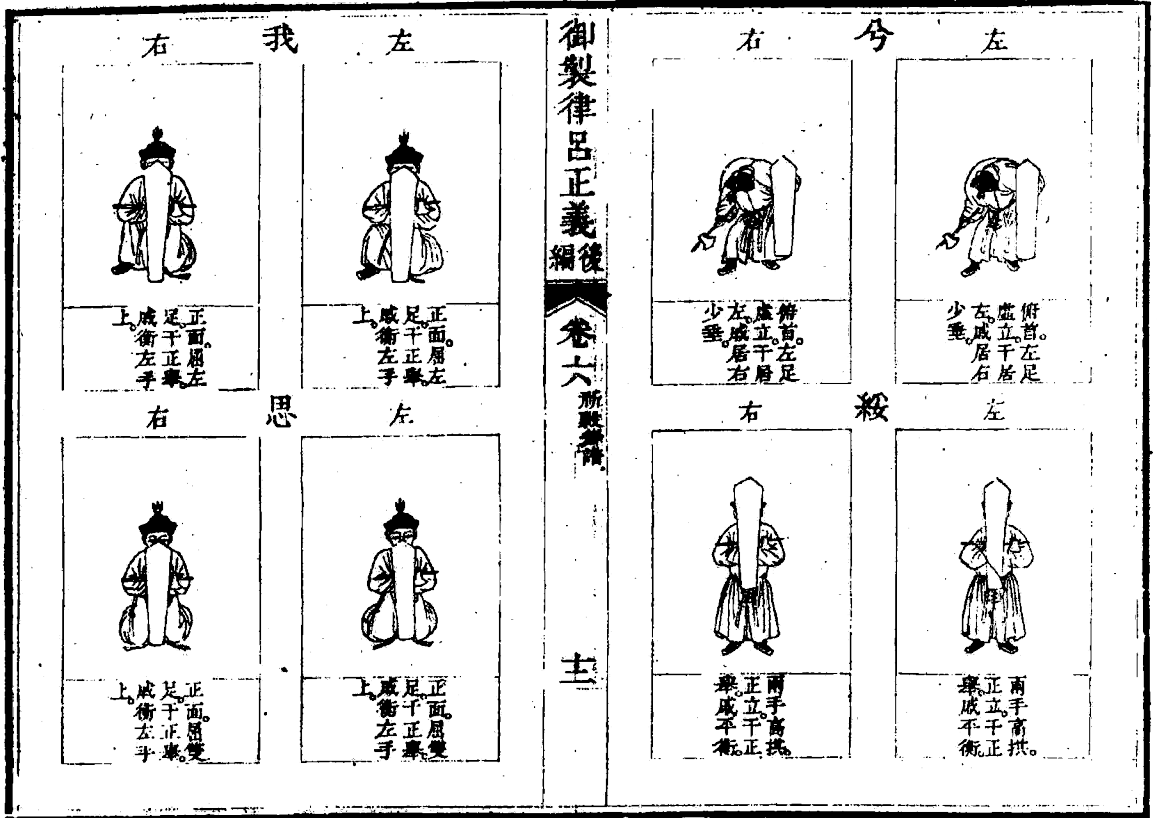 左
兮
右
俯首。左足
虛立。干居
左。戚居右
少垂。
俯首。左足
虛立。干居
左。戚居右
少垂。
左
綏
右
兩手高拱。
正立。干正
舉。戚平衡。
兩手高拱。
正立。干正
舉。戚平衡。
御製律呂正義後編
卷六
祈穀舞譜
十二
左
我
右
正面。屈左
足。干正舉。
戚衡左手
上。
正面。屈左
足。干正舉。
戚衡左手
上。
左
思
右
正面。屈雙
足。干正舉。
戚衡左手
上。
正面。屈雙
足。干正舉。
戚衡左手
上。